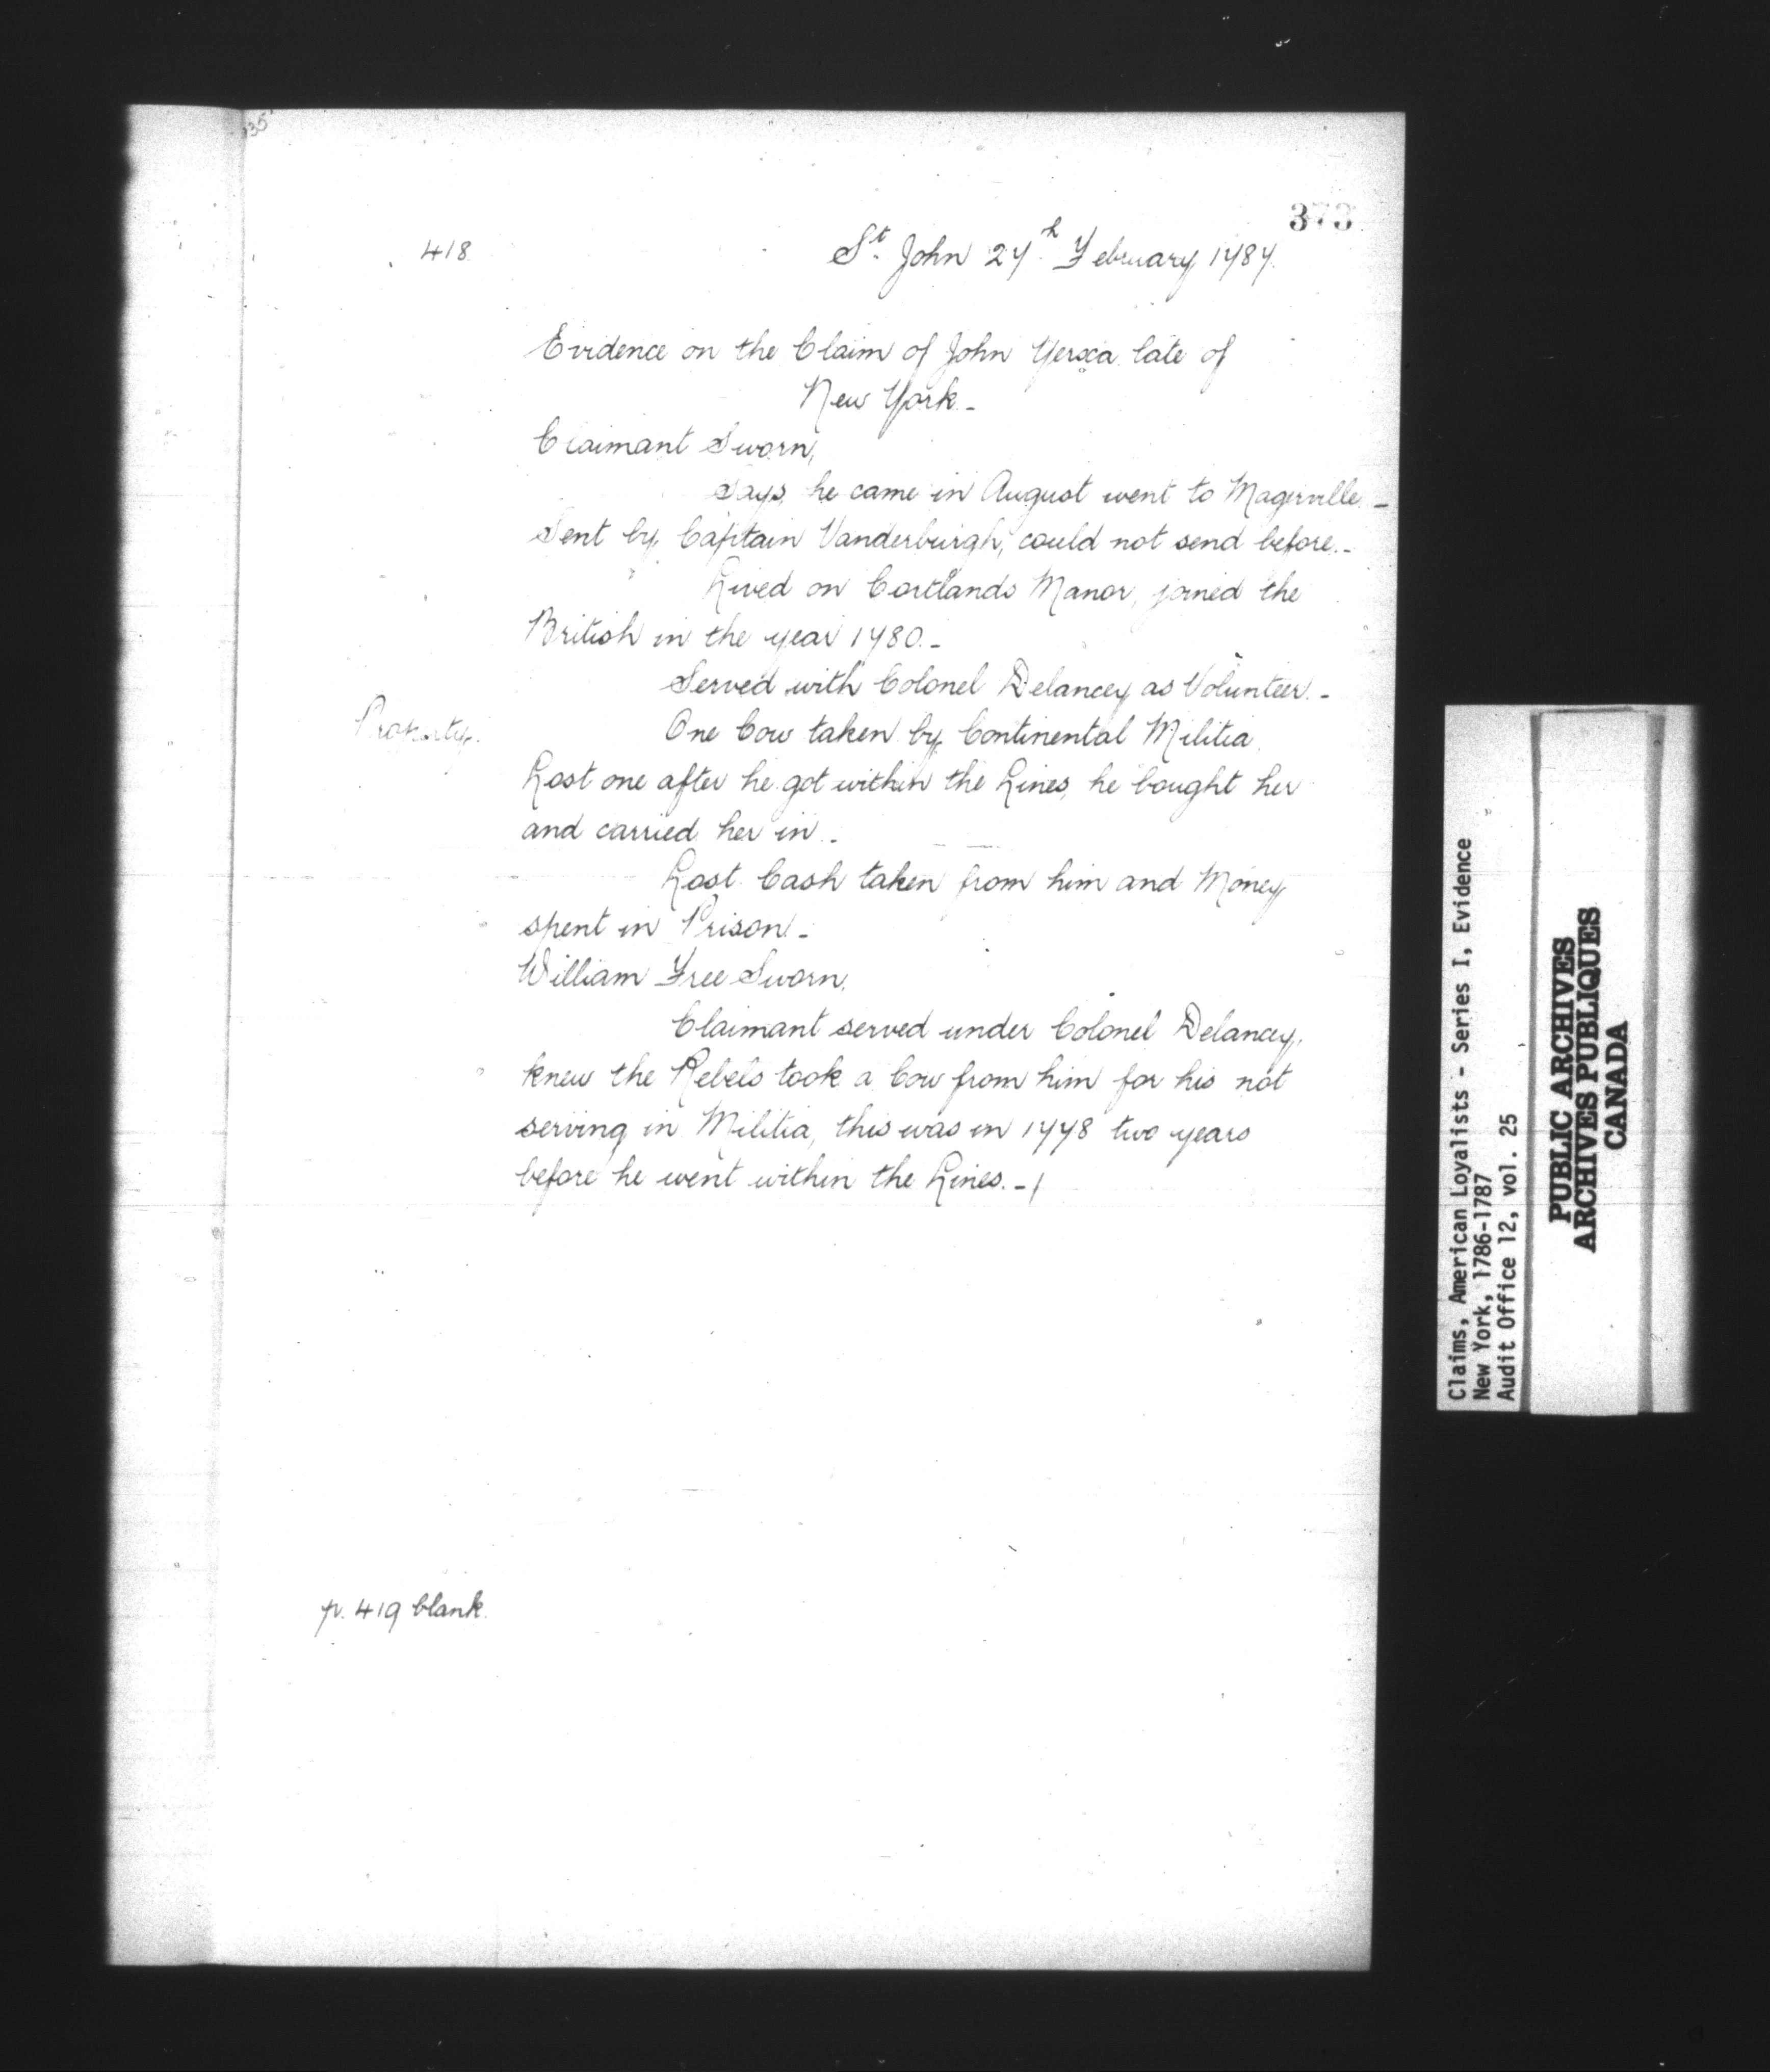 35
373
418
St. John 27th February 1787.
Evidence on the Claim of John Yerxa late of
New York._
Claimant Sworn,
Says, he came in August went to Magerville._
Sent by Captain Vanderburgh, could not send before._
Lived on Cortlands Manor, joined the
British in the year 1780._
Served with Colonel Delancey as Volunteer._
Property.
One Cow taken by Continental Militia.
Lost one after he got within the Lines, he bought her
and carried her in._
Lost Cash taken from him and Money
spent in Prison._
William Free Sworn.
Claimant served under Colonel Delancey,
knew the Rebels took a Cow from him for his not
serving in Militia, this was in 1778 two years
before he went within the Lines._/
p. 419 blank.
Claims, American Loyalists - Series I, Evidence
New York, 1786-1787
Audit Office 12, vol. 25
PUBLIC ARCHIVES
ARCHIVES PUBLIQUES
CANADA